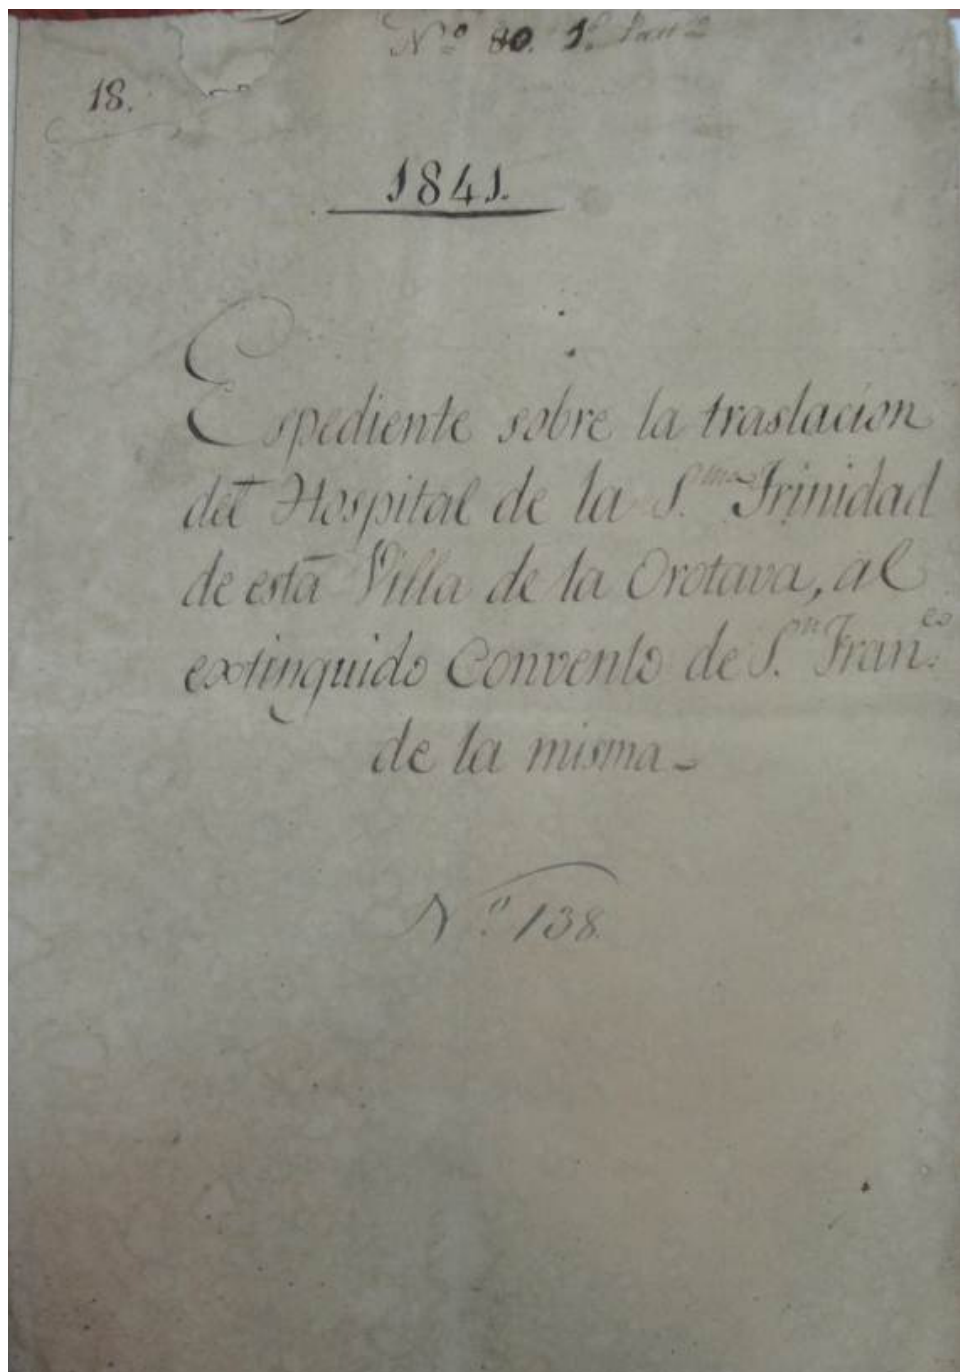 Nº 80. 1º
18.
1841.
Espediente sobre la traslacion
del Hospital de la S.ma Trinidad
de esta Villa de la Orotava, al
extinguido Convento de S.n Fran.co
de la misma-
Nº 138.